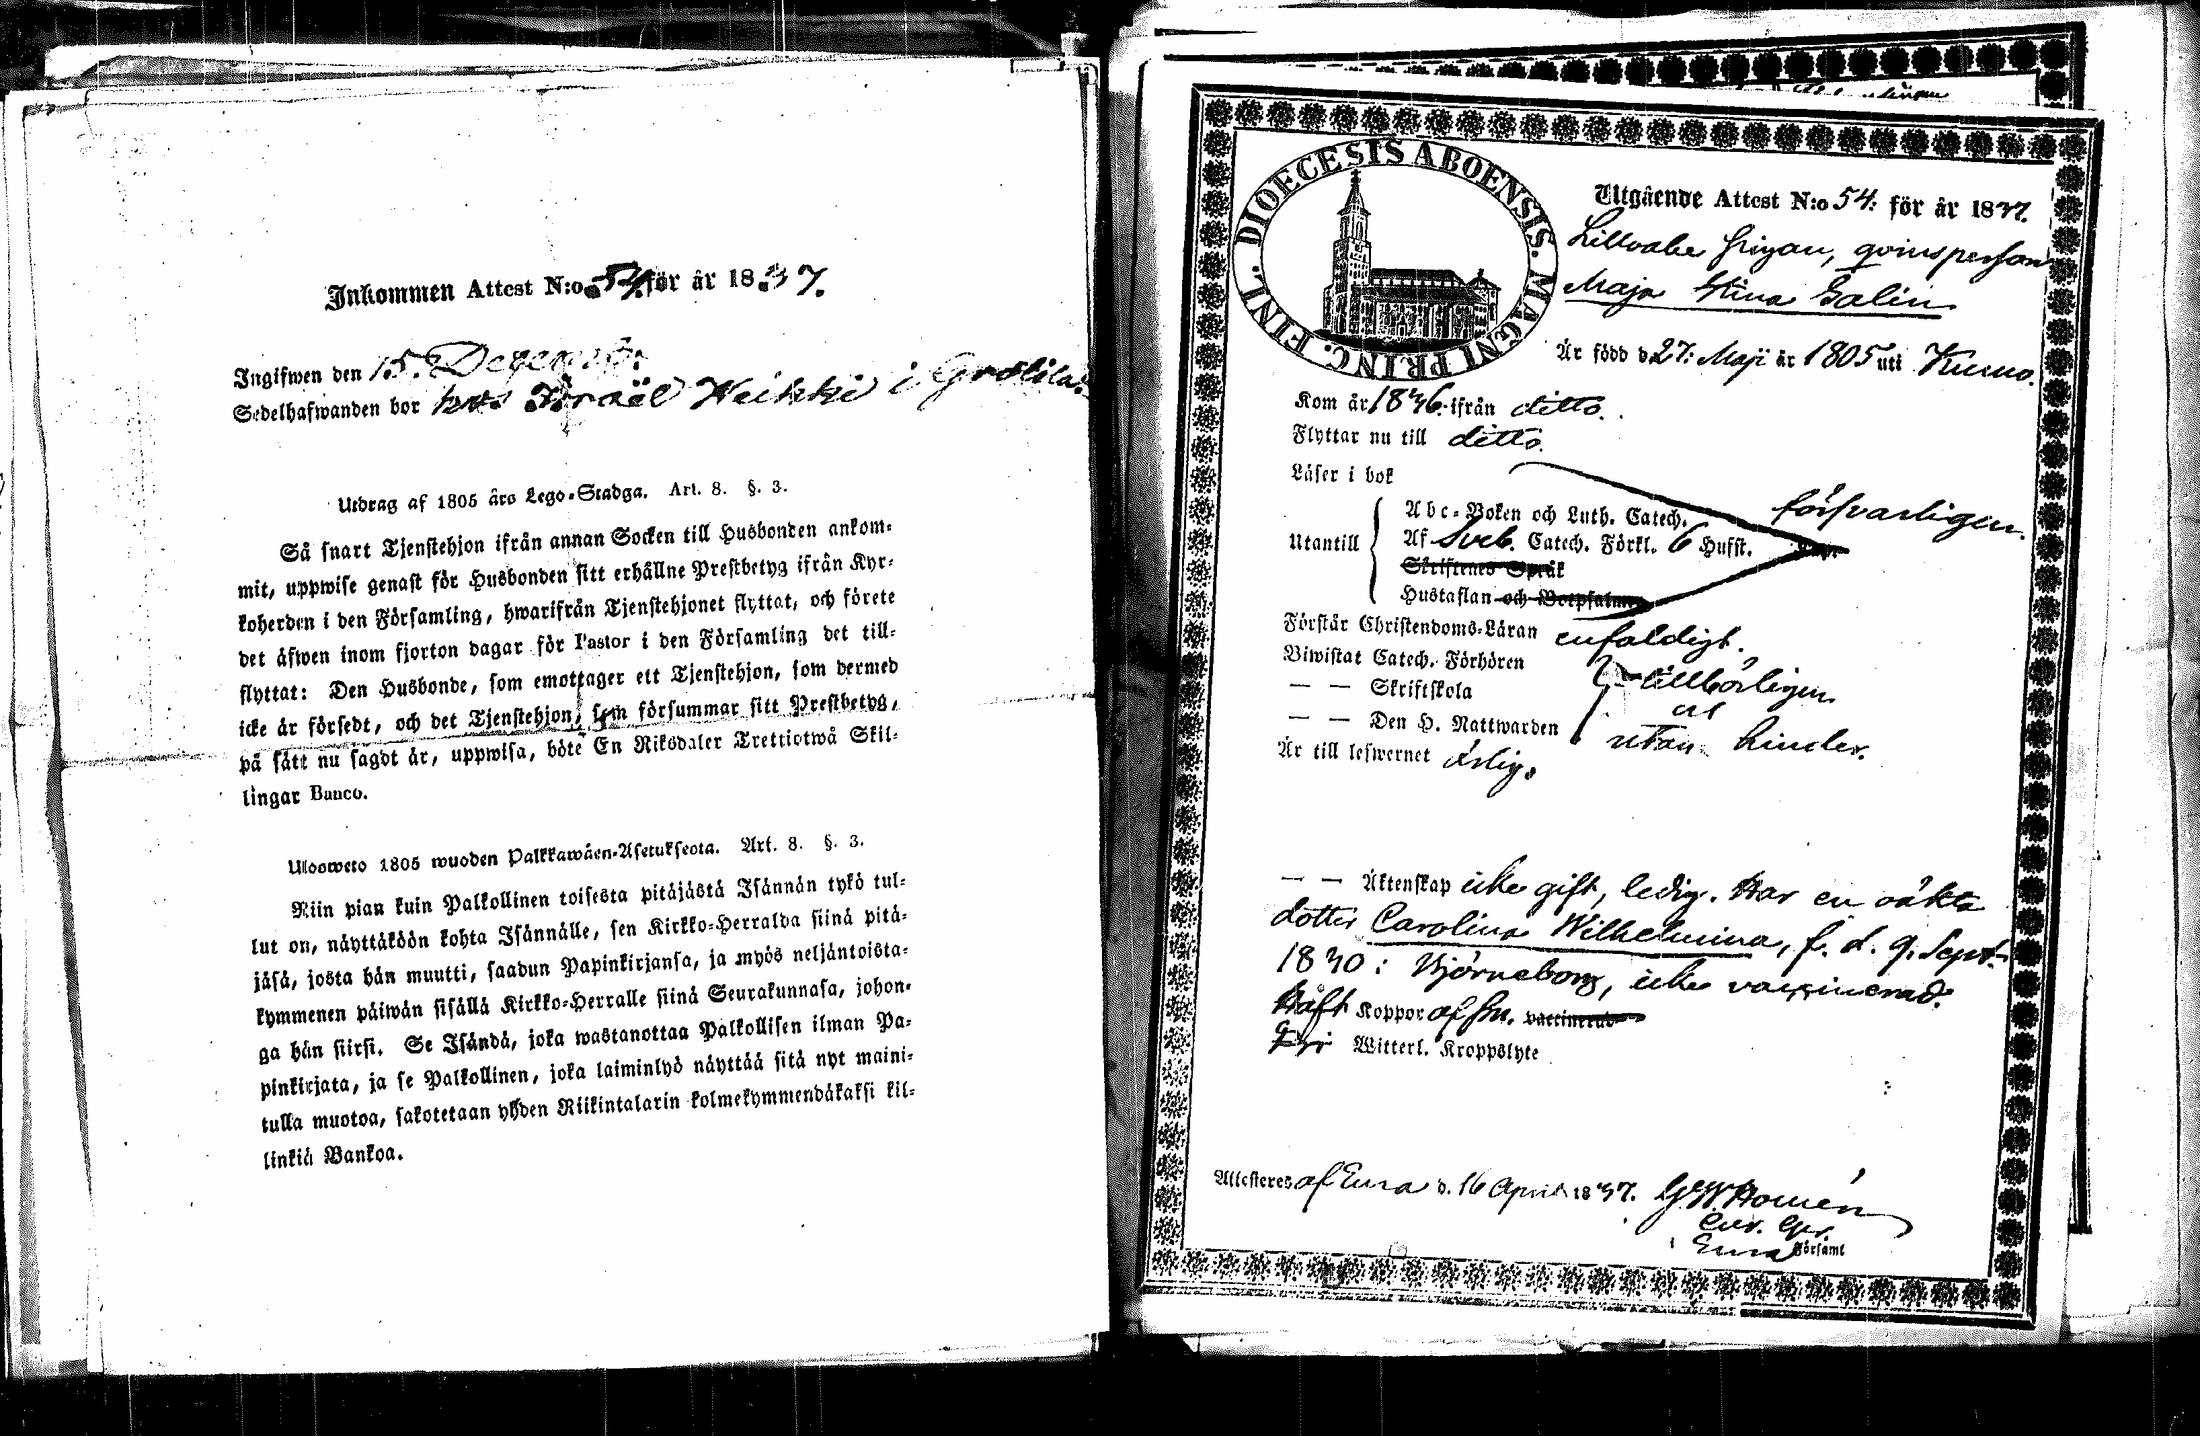 Inkommen Attest N:o 54. för år 1837.
Ingifwen den 15. Decemb.
Sedelhafwanden bor hos Israël Heikki i
Utdrag af 1805 års Lego-Stadga. Art. 8. §. 3.
Så snart Tjenstehjon ifrån annan Socken till Husbonden ankom-
mit, uppwise genast för Husbonden sitt erhållne Prestbetyg ifrån Kyr-
koherden i den Församling, hwarifrån Tjenstehjonet flyttat, och förete
det äfwen inom fjorton dagar för Pastor i den Församling det till-
flyttat: Den Husbonde, som emottager ett Tjenstehjon, som dermed
icke är försedt, och det Tjenstehjon, som försummar sitt Prestbetyg,
på sätt nu sagdt är, uppwisa, böte En Riksdaler Trettiotwå Skil-
lingar Banco.
Ulosweto 1805 wuoden Palkkawäen-Asetuksesta. Art. 8. §. 3.
Niin pian kuin Palkollinen toisesta pitäjästä Isännän tykö tul-
lut on, näyttäköön kohta Isännälle, sen Kirkko-Herralda siinä pitä-
jäsä, josta hän muutti, saadun Papinkirjansa, ja myös neljäntoista-
kymmenen päiwän sisällä Kirkko-Herralle siinä Seurakunnasa, johon-
ga hän siirsi. Se Isändä, joka wastanottaa Palkollisen ilman Pa-
pinkirjata, ja se Palkollinen, joka laiminlyö näyttää sitä nyt maini-
tulla muotoa, sakotetaan yhden Riikintalarin kolmekymmendäkaksi kil-
linkiä Bankoa.
DIOECESIS ABOENSIS. MAGNI PRINC. FINL.
Utgående Attest N:o 54. för år 1837.
qvinsperson
Maja Stina Galin
Är född d. 27. Maji år 1805 uti Kiumo.
Kom år 1836 ifrån ditto.
Flyttar nu till ditto.
Läser i bok
Abc-Boken och Luth. Catech. försvarligen.
Utantill Af Sveb. Catech. Förkl. 6 Hufst.
Skriftenes Språk
Hustaflan och Botpsalmer
Förstår Christendoms-Läran enfaldigt.
Biwistat Catech. Förhören
— — Skriftskola tillbörligen
— — Den H. Nattwarden utan hinder.
Är till lefwernet ärlig.
— — Äktenskap icke gift, ledig. Har en oäkta
dotter Carolina Wilhelmina, f. d. 9. Sept.
1830 i Björneborg, icke vaccinerad.
Haft Koppor vaccinerad
Ej Witterl. Kroppslyte
Attesteres af Eura d. 16 April 1837. G W Homén
Eura Församl